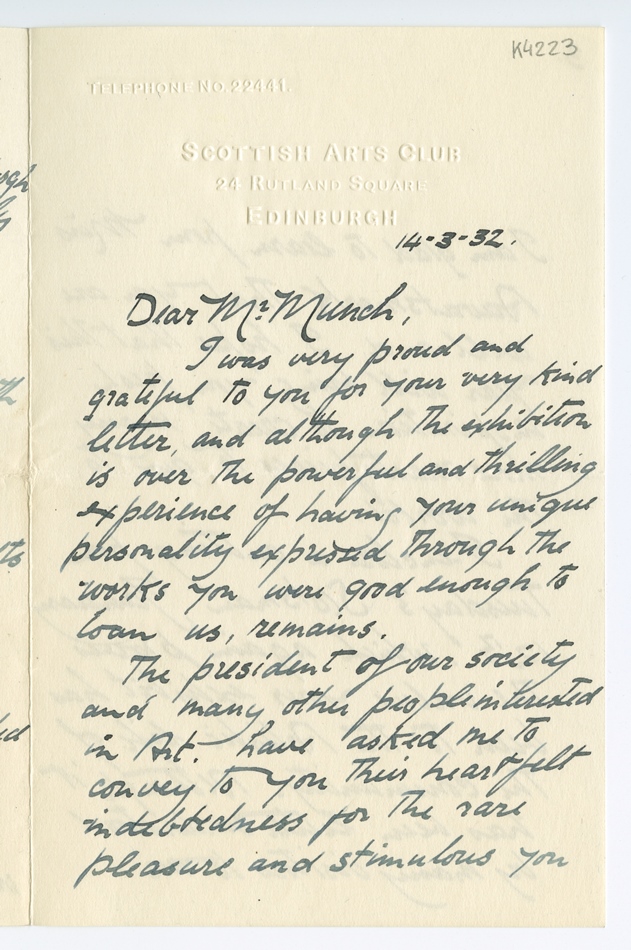 K4223
TELEPHONE NO. 22441.
SCOTTISH ARTS CLUB
24 RUTLAND SQUARE
EDINBURGH
14-3-32.
Dear Mr Munch,
I was very proud and
grateful to you for your very kind
letter, and although the exhibition
is over the powerful and thrilling
experience of having your unique
personality expressed through the
works you were good enough to
loan us, remains.
The president of our society
and many other people interested
in Art. have asked me to
convey to you their heartfelt
indebtedness for the rare
pleasure and stimulous you